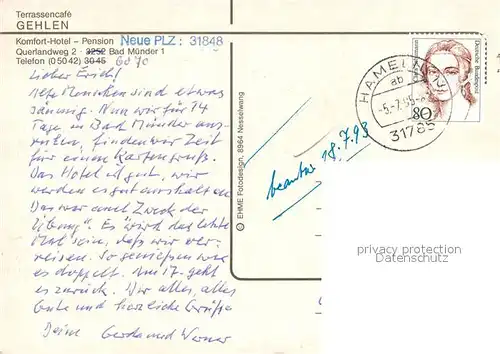 Terrassencafé
GEHLEN
Komfort-Hotel – Pension Neue PLZ: 31848
Querlandweg 2 · 3252 Bad Münder 1
Telefon (05042) 3045 6070
Lieber Erich!
Alte Menschen sind etwas
säumig. Nun wir für 14
Tage in Bad Münder aus-
ruhen, finden wir Zeit
für einen Kartengruß.
Das Hotel ist gut, wir
werden es gut aushalten.
Das war auch Zweck der
"Übung". Es wird das letzte
Mal sein, daß wir ver-
reisen. So genießen wir
es doppelt. Am 17. geht
es zurück. Dir alles, alles
Gute und herzliche Grüße
Deine Gerda und Werner
© EHME Fotodesign, 8964 Nesselwang
beantw. 18.7.93
HAMELN 2
ab
-5.-7.95-
31785
80
Deutsche Bundespost
privacy protection
AnsichtskartenCenter